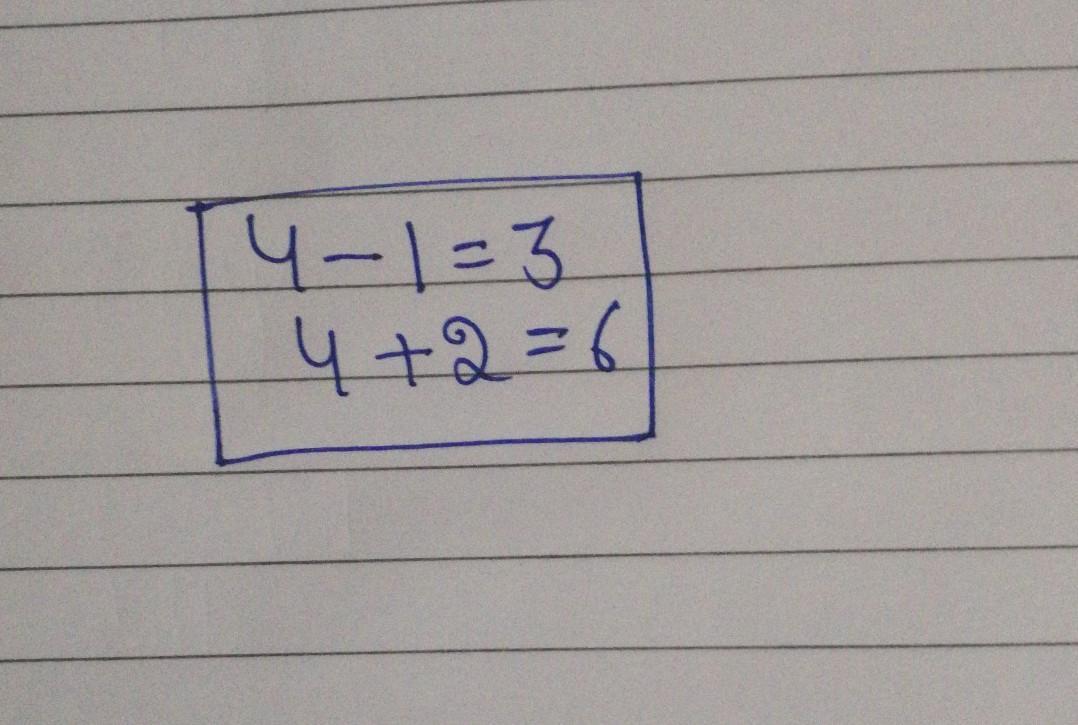 4 - 1 = 3
4 + 2 = 6